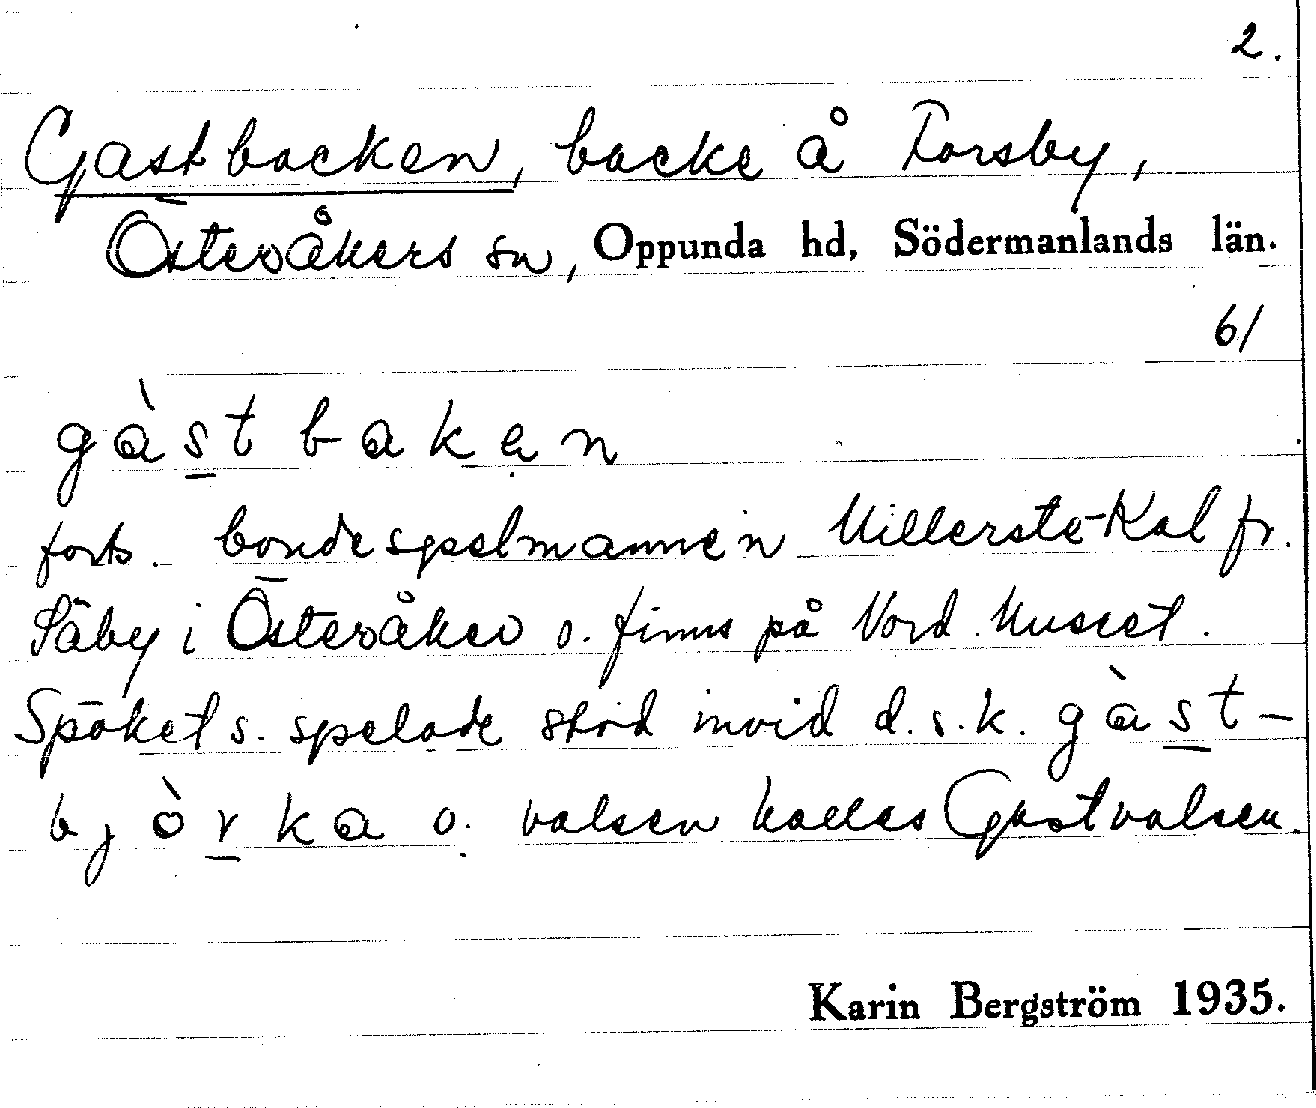 2.
Gastbacken, backe å Forsby,
Österåkers sn, Oppunda hd, Södermanlands län.
61
gàst bakan
forts. bondespelmannen Millerste-Kal fr.
Säby i Österåker o. finns på Nord. Museet.
Spöket s. spelade stod invid d.s.k. gàst-
bjòrka o. valsen kallas Gastvalsen.
Karin Bergström 1935.